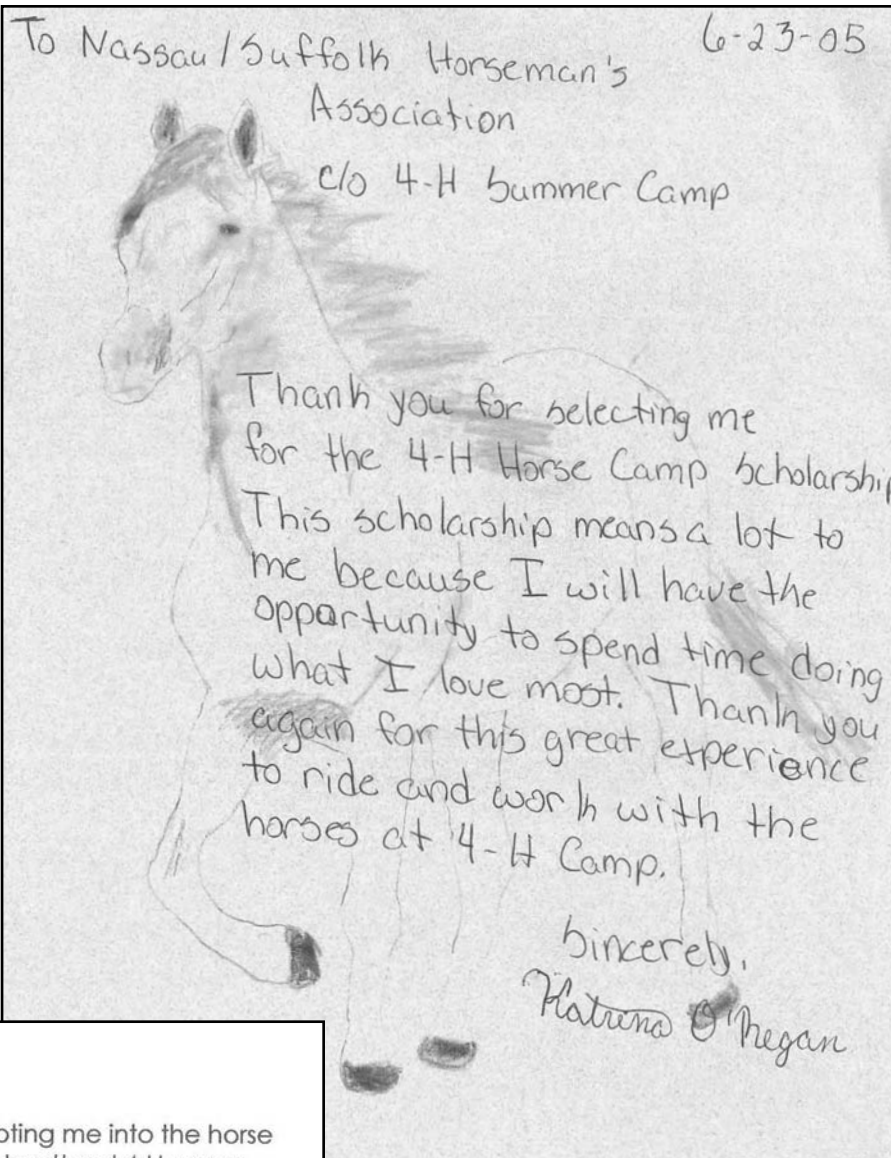 To Nassau/Suffolk Horseman's
6-23-05
Association
c/o 4-H Summer Camp
Thank you for selecting me
for the 4-H Horse Camp scholarship
This scholarship means a lot to
me because I will have the
opportunity to spend time doing
what I love most. Thank you
again for this great experience
to ride and work with the
horses at 4-H Camp.
Sincerely,
Katrina O'
me into the horse